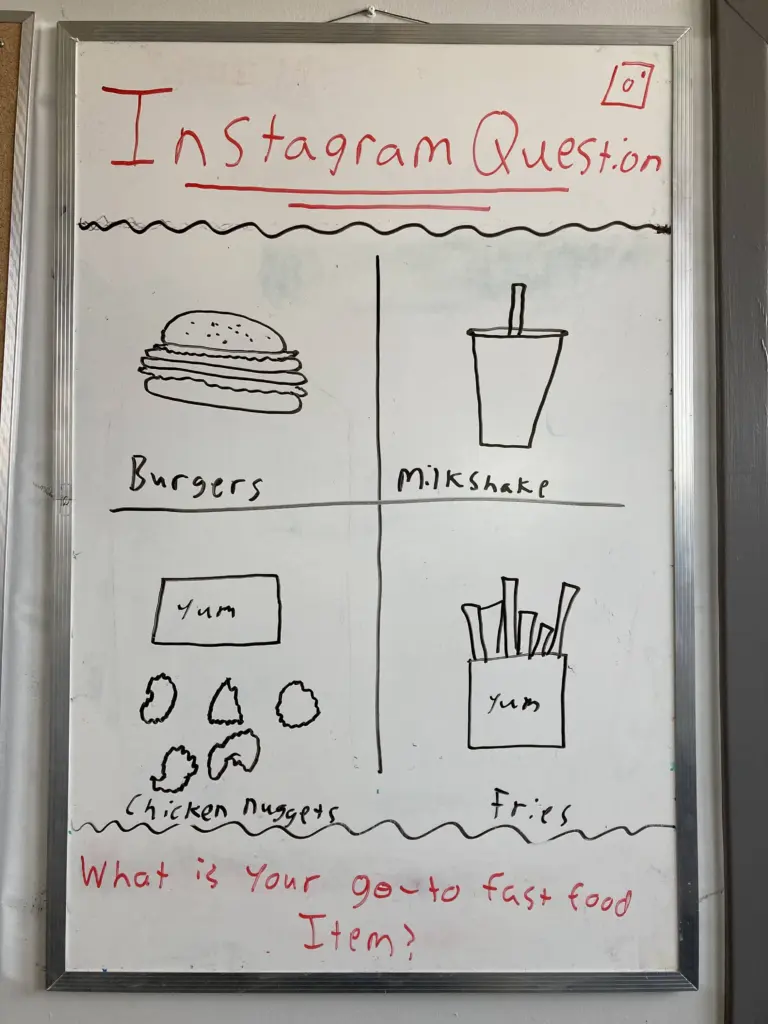 Instagram Question
Burgers
Milkshake
Yum
Yum
Chicken nuggets
Fries
What is your go-to fast food
Item?